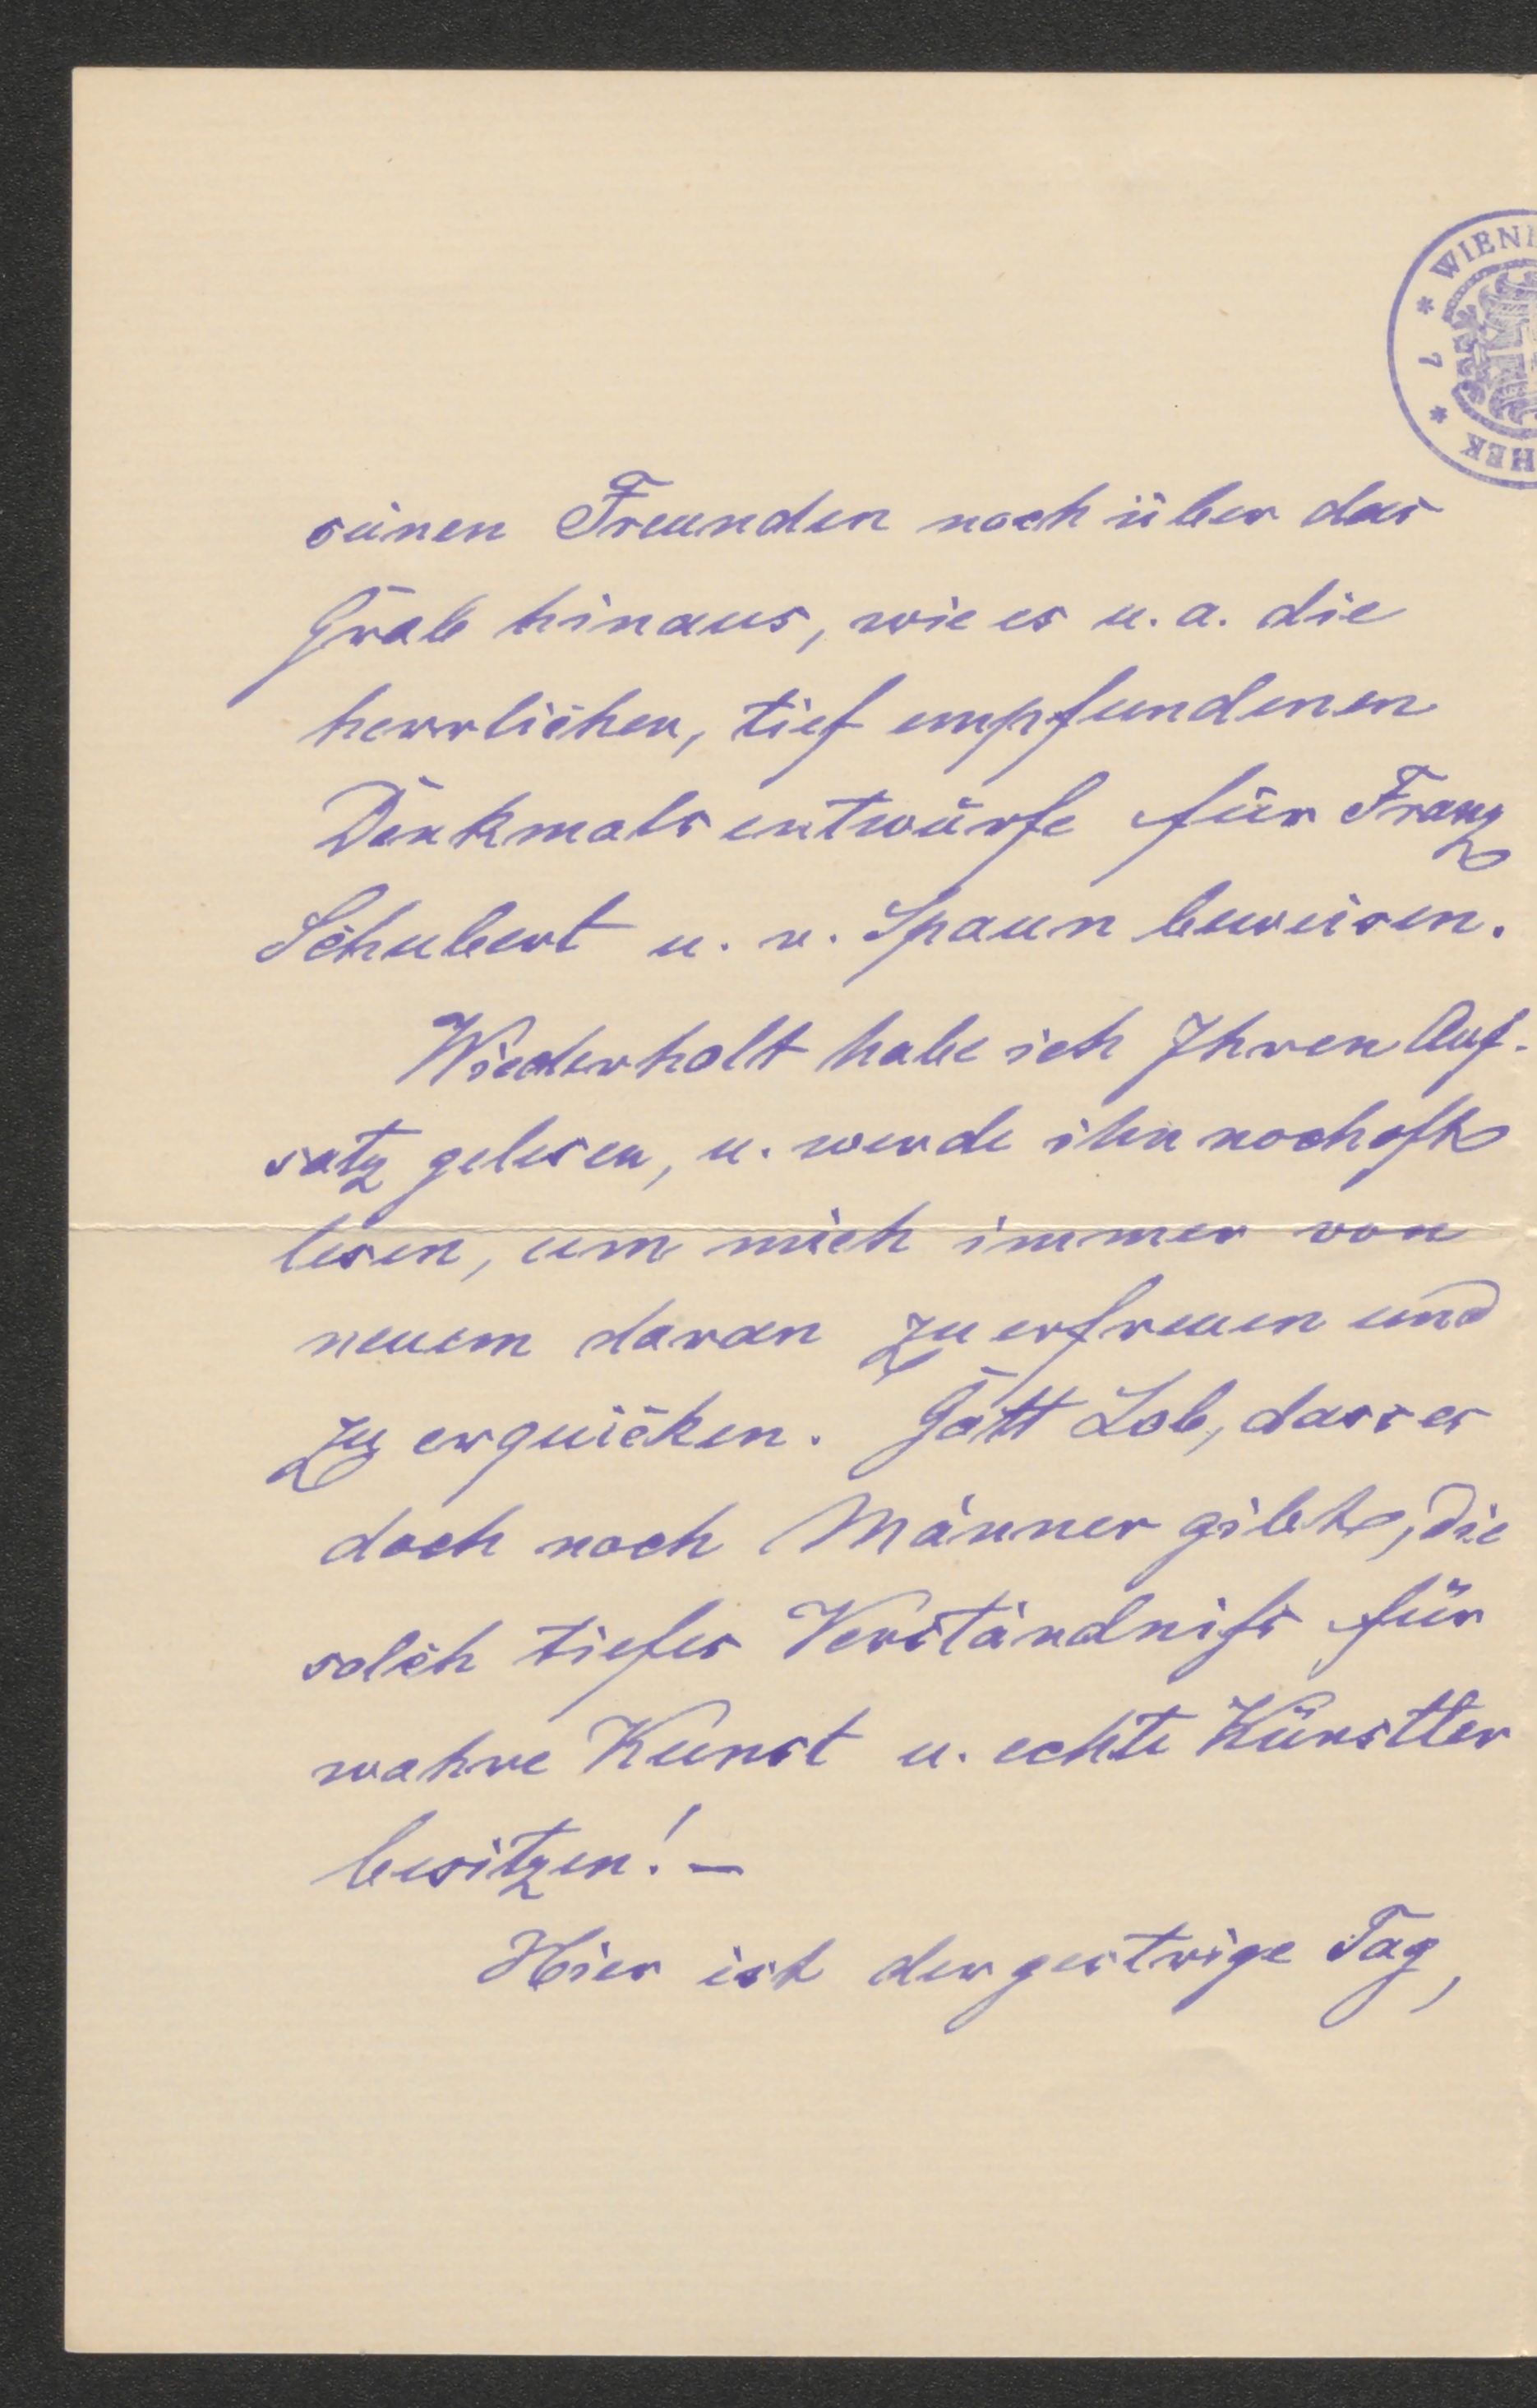 WIEN
* 7 *
HEK
seinen Freunden noch über das
Grab hinaus, wie es u. a. die
herrlichen, tief empfundenen
Denkmalsentwürfe für Franz
Schubert u. v. Spaun beweisen.
Wiederholt habe ich Ihren Auf-
satz gelesen, u. werde ihn noch oft
lesen, um mich immer von
neuem daran zu erfreuen und
zu erquicken. Gott Lob, dass es
doch noch Männer gibt, die
solch tiefes Verständniß für
wahre Kunst u. echte Künstler
besitzen! –
Hier ist der gestrige Tag,